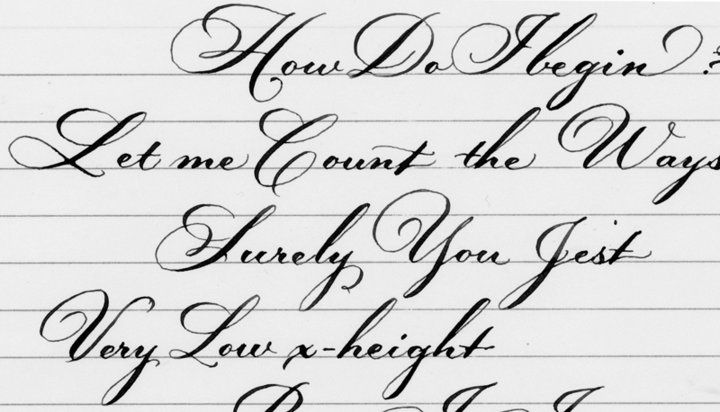 How Do I begin ?
Let me Count the Ways
Surely You Jest
Very Low x-height